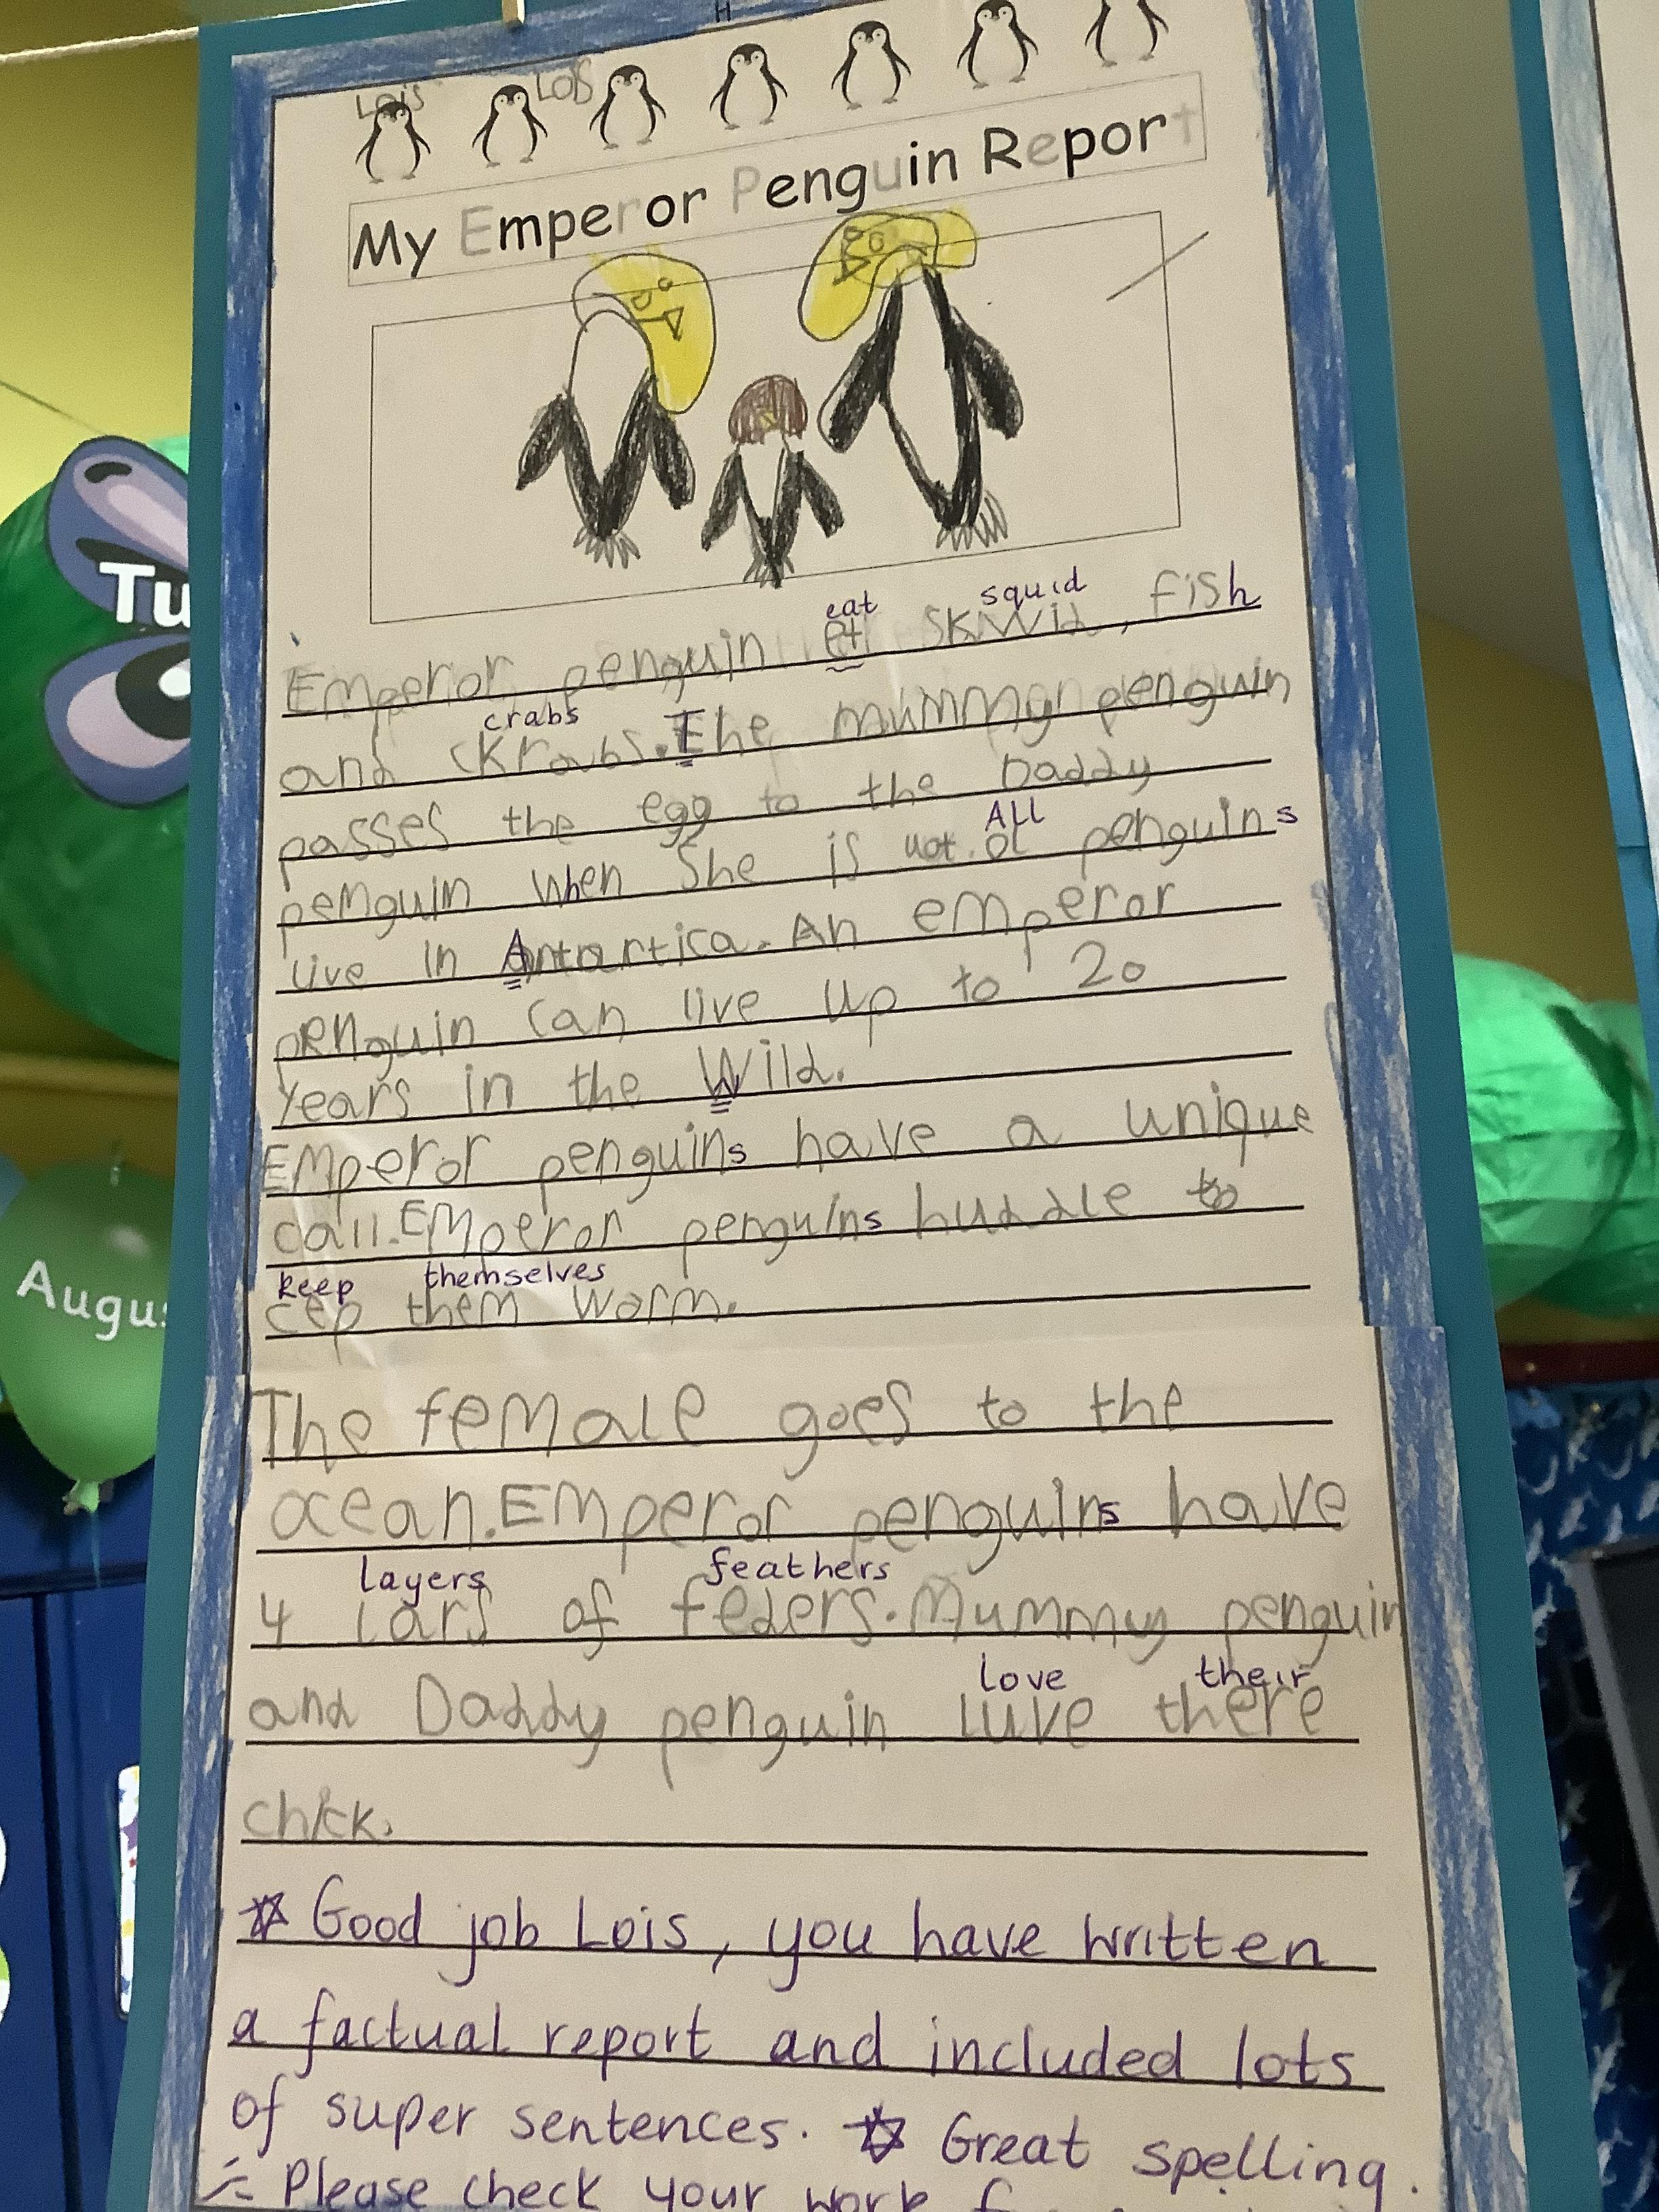 LOIS LOIS
My Emperor Penguin Report
eat squid
Emperor penguin et skwid, fish
crabs
and ckrabs. The mummy penguin
passes the egg to the Daddy
ALL
penguin when She is uot. ol penguins
live in Antartica. An emperor
penguin can live up to 20
years in the Wild.
Emperor penguins have a unique
call. Emperor penguins huddle to
keep themselves
cep them worm.
The female goes to the
ocean. Emperor penguins have
layers feathers
4 lars of feders. Mummy penguin
love their
and Daddy penguin luve there
chick.
☆ Good job Lois, you have written
a factual report and included lots
of super sentences. ☆ Great spelling.
Please check your work
Tu
Augu